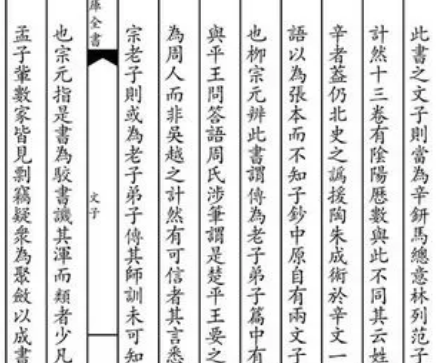 此書之文子則當為辛鈃馬總意林列范子
計然十三卷有陰陽厯數與此不同其云姓
辛者葢仍北史之譌援陶朱成術於辛文一
語以為張本而不知子鈔中原自有兩文子
也栁宗元辨此書謂傳為老子弟子篇中有
與平王問答語周氏涉筆謂是楚平王要之
為周人而非吳越之計然有可信者其言悉
宗老子則或為老子弟子傳其師訓未可知
庫全書
文子
也宗元指是書為駮書譏其渾而類者少凡
孟子輩數家皆見剽竊疑衆為聚斂以成書